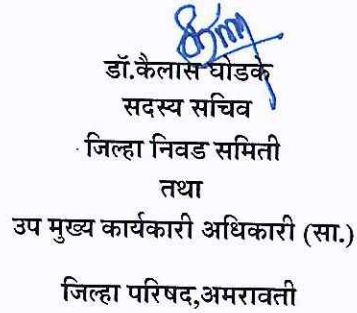 डॉ.कैलास घोडके
सदस्य सचिव
जिल्हा निवड समिती
तथा
उप मुख्य कार्यकारी अधिकारी (सा.)
जिल्हा परिषद,अमरावती